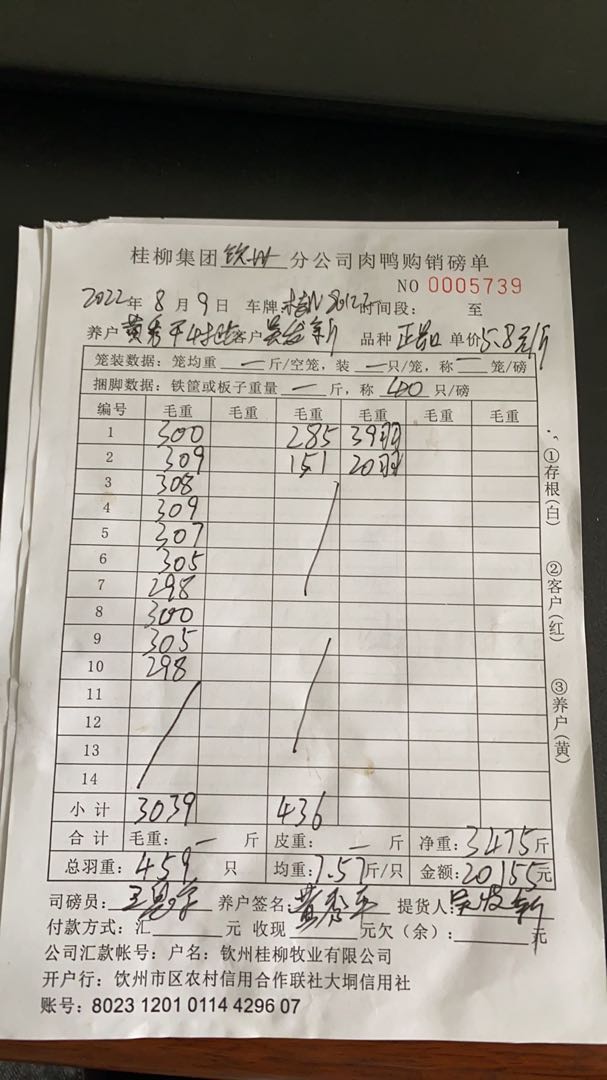 桂柳集团钦州分公司肉鸭购销磅单
NO 0005739
2022年8月9日 车牌 时间段: 至
养户 黄秀平 客户 吴发新 品种 正品 单价5.8元/斤
笼装数据: 笼均重 — 斤/空笼, 装 — 只/笼, 称 — 笼/磅
捆脚数据: 铁筐或板子重量 — 斤, 称 40 只/磅
编号 毛重 毛重 毛重 毛重 毛重 毛重
1 300 285 39羽
2 309 151 20羽
3 308
4 309
5 307
6 305
7 298
8 300
9 305
10 298
11
12
13
14
小计 3039 436
合计 毛重: — 斤 皮重: — 斤 净重: 3475斤
总羽重: 459 只 均重: 7.57斤/只 金额: 20155元
司磅员: 养户签名: 黄秀平 提货人: 吴发新
付款方式: 汇 元 收现 元欠(余): 元
公司汇款帐号: 户名: 钦州桂柳牧业有限公司
开户行: 钦州市区农村信用合作联社大垌信用社
账号: 8023 1201 0114 4296 07
①存根(白) ②客户(红) ③养户(黄)